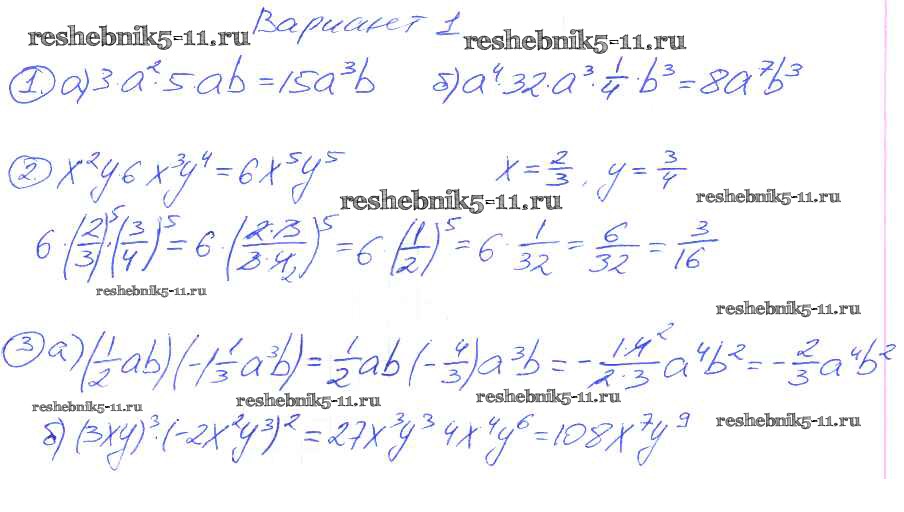 Вариант 1
reshebnik5-11.ru reshebnik5-11.ru
1. а) 3·a²·5·ab = 15a³b б) a⁴·32·a³·1/4·b³ = 8a⁷b³
2. x²y6x³y⁴ = 6x⁵y⁵ x = 2/3, y = 3/4
reshebnik5-11.ru reshebnik5-11.ru
6·(2/3)⁵·(3/4)⁵ = 6·(2·3/3·4₂)⁵ = 6·(1/2)⁵ = 6·1/32 = 6/32 = 3/16
reshebnik5-11.ru
reshebnik5-11.ru
3 а) (1/2ab)(-1 1/3a³b) = 1/2ab(-4/3)a³b = -1·4²/2·3a⁴b² = -2/3a⁴b²
reshebnik5-11.ru reshebnik5-11.ru reshebnik5-11.ru
б) (3xy)³·(-2x²y³)² = 27x³y³4x⁴y⁶ = 108x⁷y⁹
reshebnik5-11.ru